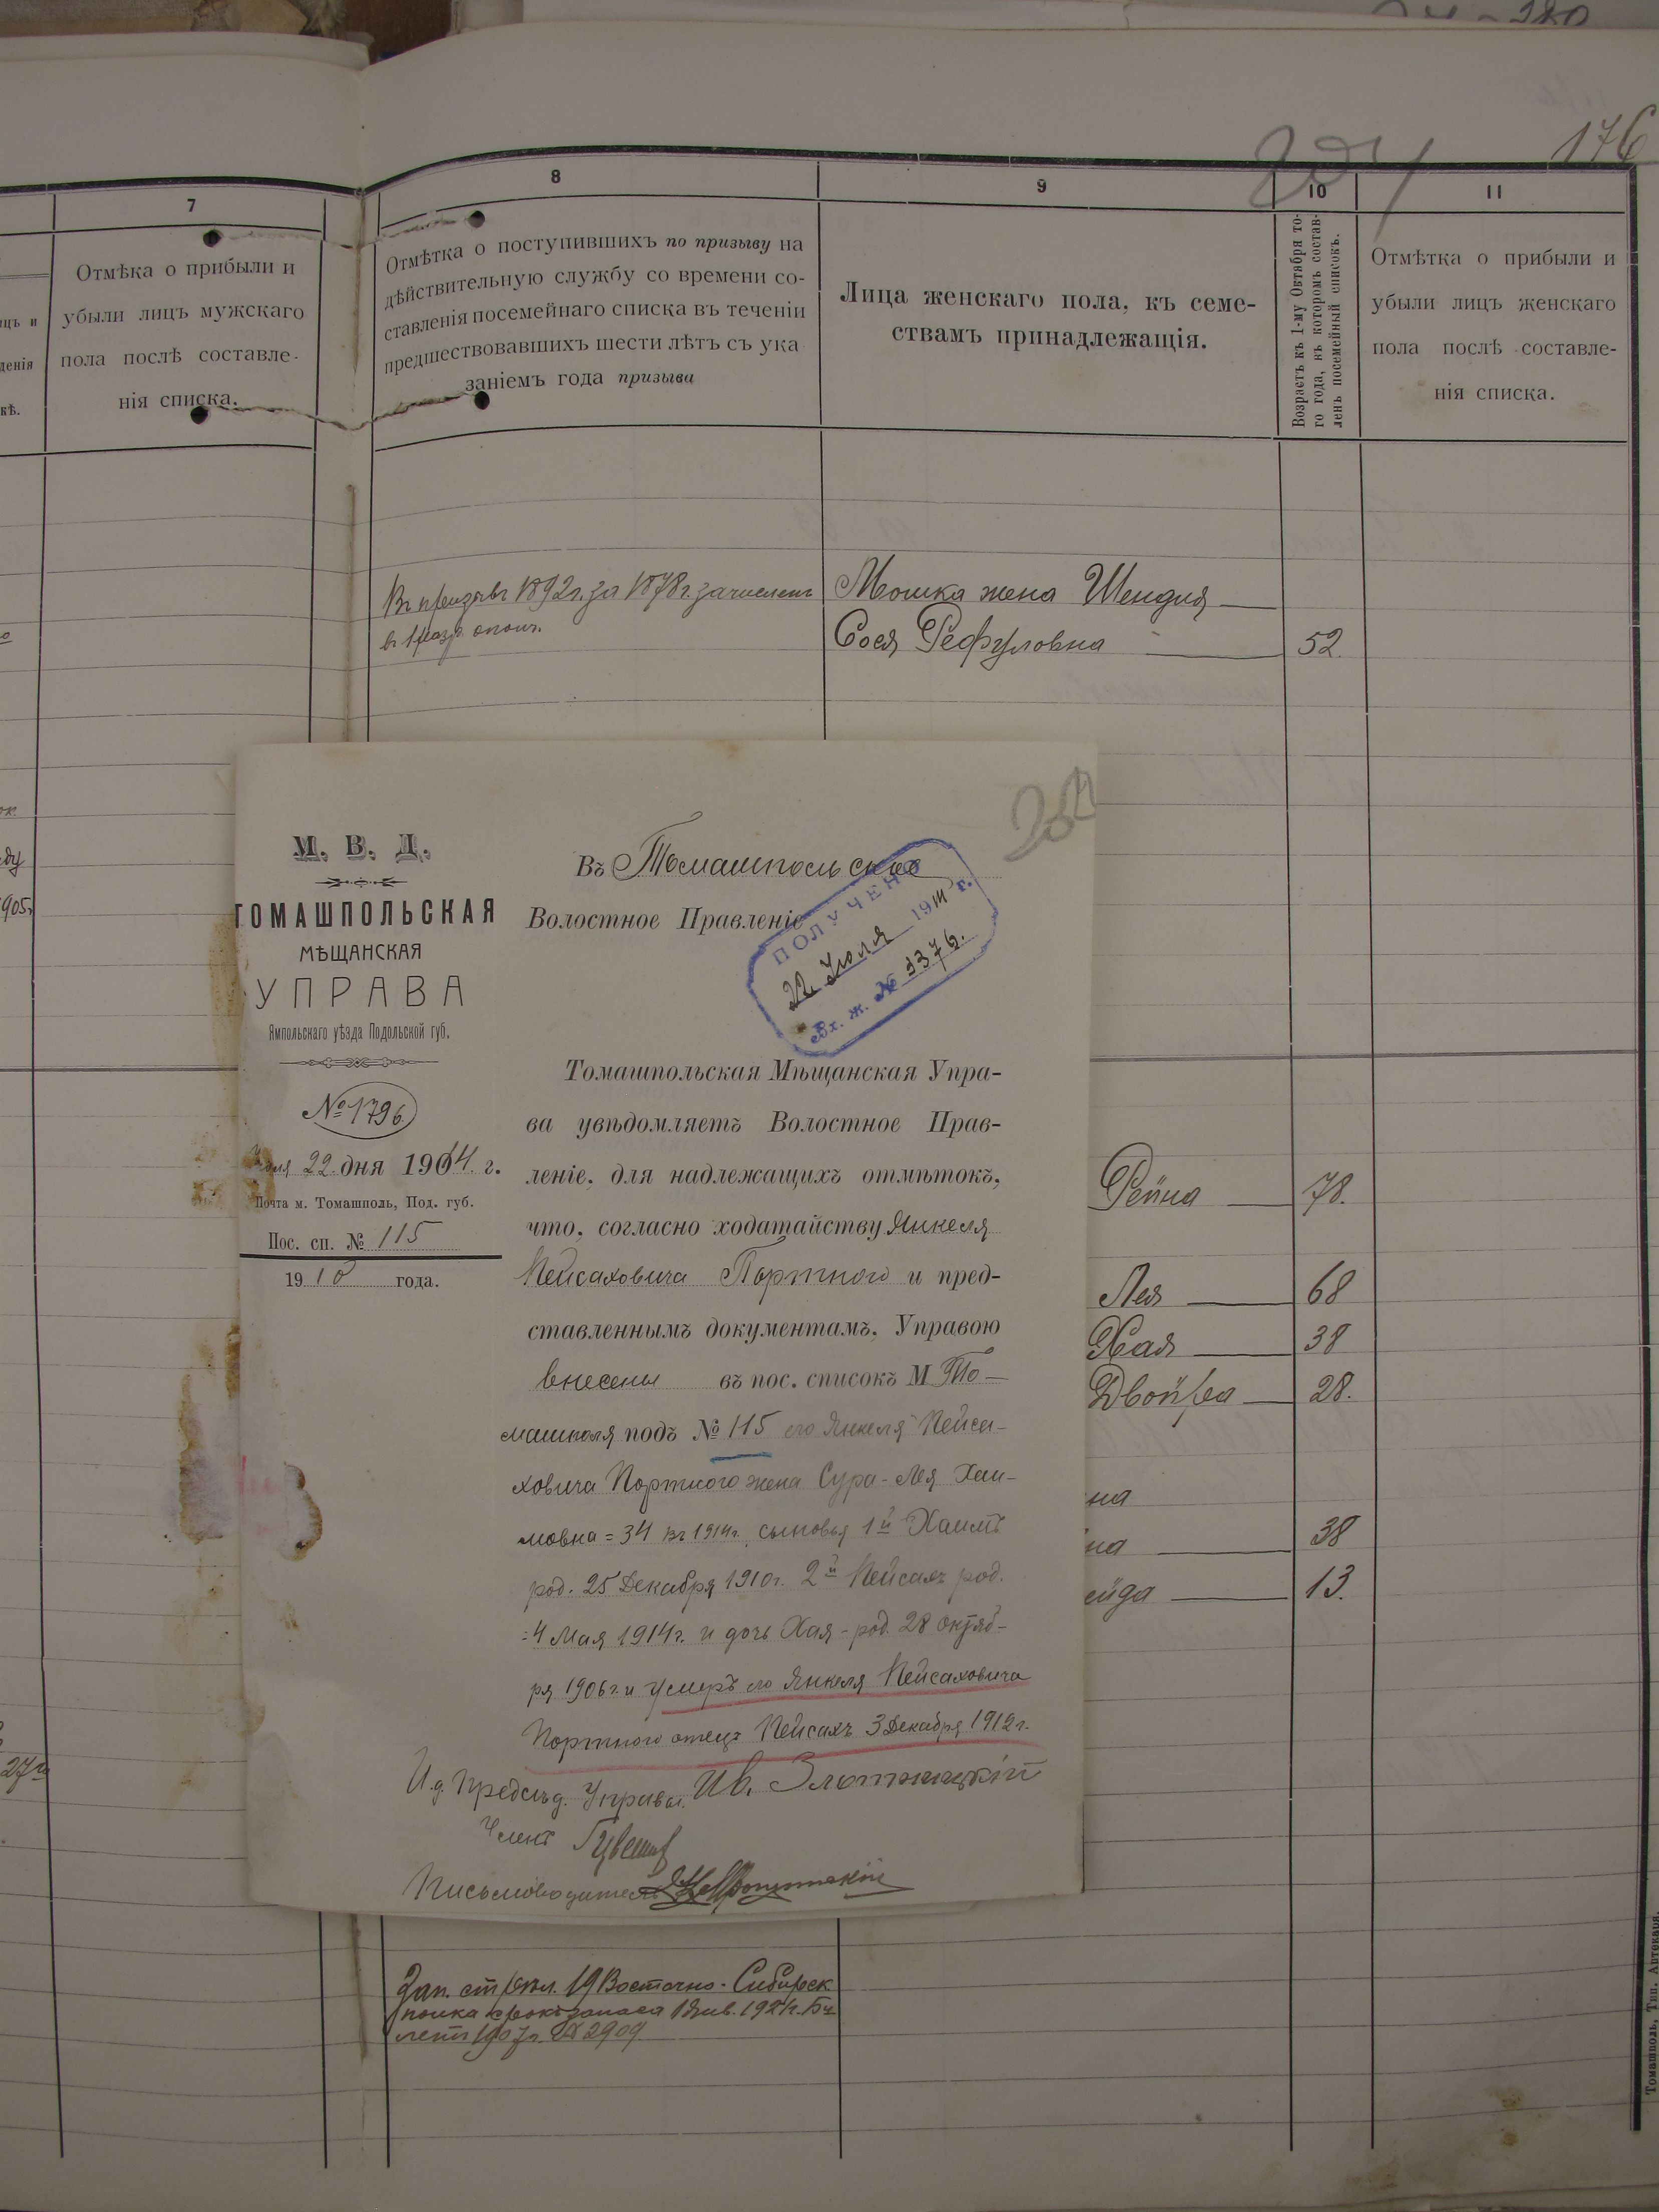 176
7
8
9
10
11
Отмѣка о прибыли и
убыли лицъ мужскаго
пола послѣ составле-
нія списка.
Отмѣтка о поступившихъ по призыву на
дѣйствительную службу со времени со-
ставленія посемейнаго списка въ теченіи
предшествовавшихъ шести лѣтъ съ ука
заніемъ года призыва
Лица женскаго пола, къ семе-
ствамъ принадлежащія.
Возрастъ къ 1-му Октября то-
го года, въ которомъ состав-
ленъ посемейный списокъ.
Отмѣтка о прибыли и
убыли лицъ женскаго
пола послѣ составле-
нія списка.
Въ призывъ 1892 г. за 1878 г. зачисленъ
въ 1 разр. ополч.
Мошка жена Шендля
Сося Рефуловна 52
М. В. Д.
ТОМАШПОЛЬСКАЯ
МѢЩАНСКАЯ
УПРАВА
Ямпольскаго уѣзда Подольской губ.
№ 1796
Іюля 22 дня 1914 г.
Почта м. Томашполь, Под. губ.
Пос. сп. № 115
1910 года.
Въ Томашпольское
Волостное Правленіе
ПОЛУЧЕНО
22 Іюля 1914 г.
Вх. ж. № 1376.
Томашпольская Мѣщанская Упра-
ва увѣдомляетъ Волостное Прав-
леніе, для надлежащихъ отмѣтокъ,
что, согласно ходатайству Янкеля
Пейсаховича Портного и пред-
ставленнымъ документамъ, Управою
внесены въ пос. списокъ М То-
машполя подъ № 115 его Янкеля Пейса-
ховича Портного жена Сура-Лея Хаи-
мовна = 34 въ 1914 г. сыновья 1й Хаимъ
род. 25 Декабря 1910 г. 2й Пейсахъ род.
=4 Мая 1914 г. и дочь Хая - род. 28 октяб-
ря 1906 г. и умеръ его Янкеля Пейсаховича
Портного отецъ Пейсахъ 3 Декабря 1912 г.
И.д. Предсѣд. Управы. Ив. Злотницкій
Членъ
Письмоводитель
Рейна 78.
Лея 68
Хая 38
Двойра 28.
на
на 38
ейда 13.
905г
27го
Зап. ст. 19 Восточно-Сибирск
полка срокъ запаса 1 Янв. 1921 г. Би
летъ 1907 г. № 2909
Томашполь, Тип. Аптекаря.